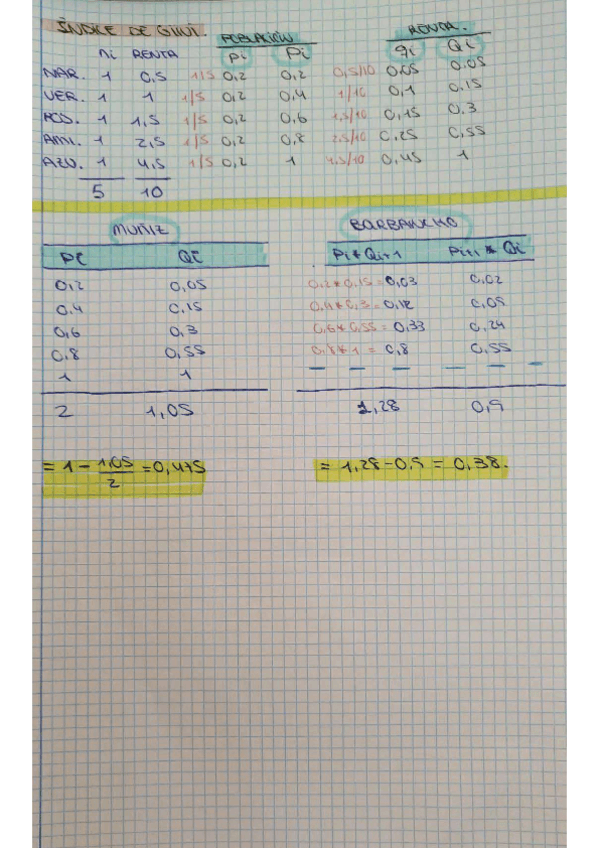 ÍNDICE DE GINI. POBLACIÓN RENTA.
ni RENTA pi Pi qi Qi
NAR. 1 0,5 1/5 0,2 0,2 0,5/10 0,05 0,05
VER. 1 1 1/5 0,2 0,4 1/10 0,1 0,15
ROS. 1 1,5 1/5 0,2 0,6 1,5/10 0,15 0,3
AMI. 1 2,5 1/5 0,2 0,8 2,5/10 0,25 0,55
AZU. 1 4,5 1/5 0,2 1 4,5/10 0,45 1
5 10
MUÑIZ BARBANCHO
Pi Qi Pi * Qi+1 Pi+1 * Qi
0,2 0,05 0,2*0,15 = 0,03 0,02
0,4 0,15 0,4*0,3 = 0,12 0,09
0,6 0,3 0,6*0,55 = 0,33 0,24
0,8 0,55 0,8*1 = 0,8 0,55
1 1 — — — — — —
2 1,05 1,28 0,9
= 1 - 1,05/2 = 0,475 = 1,28 - 0,9 = 0,38.